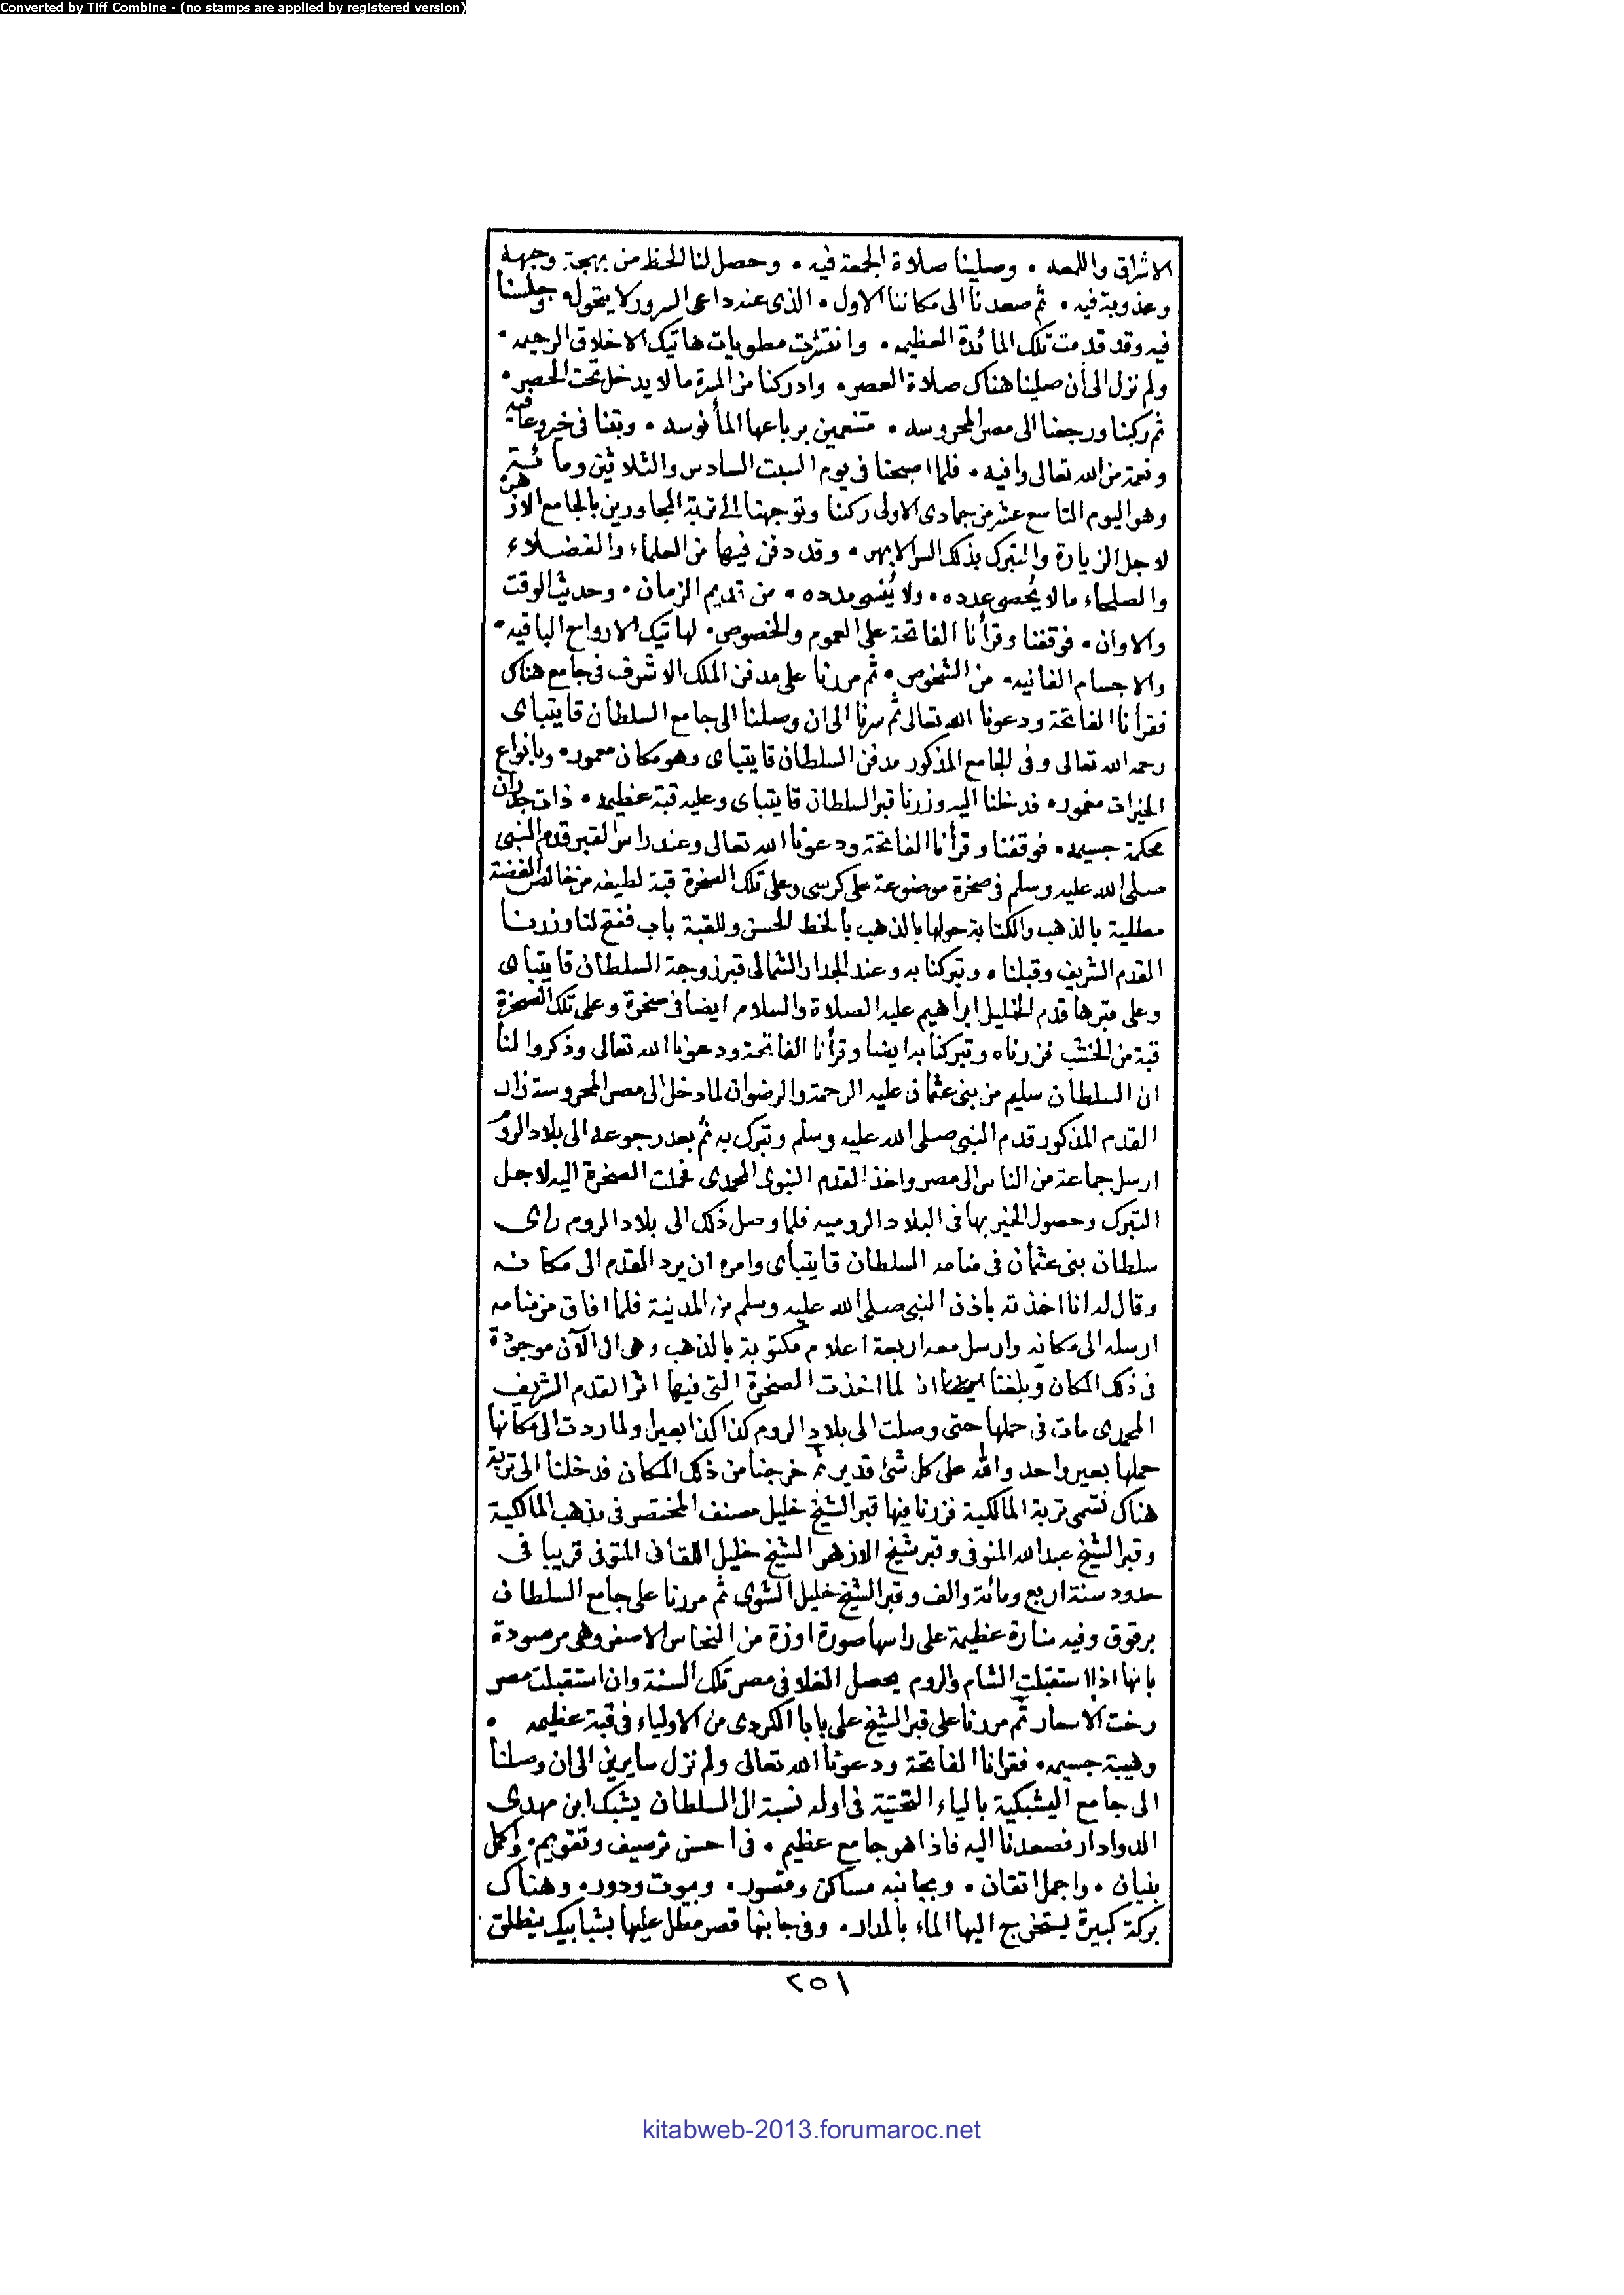 Converted by Tiff Combine - (no stamps are applied by registered version)
الاشراق واللمعه ٠ وصلينا صلاة الجمعة فيه ٠ وحصل لنا الحظ من بهجة وجهه
وعذوبة فيه ٠ ثم صعدنا الى مكاننا الاول ٠ الذى عند داعى السرور لا يتحول ٠ وجلسنا
فيه وقد قدمت تلك المائدة العظيمه ٠ وانتشرت مطويات هاتيك الاخلاق الرحيمه ٠
ولم نزل الى أن صلينا هناك صلاة العصر ٠ وادركنا من المسرة ما لا يدخل تحت الحصر ٠
ثم ركبنا ورجعنا الى مصر المحروسه ٠ متنعمين برباعها المأنوسه ٠ وبتنا فى خير وعافيه
ونعمة من الله تعالى وافيه ٠ فلما اصبحنا فى يوم السبت السادس والثلاثين ومائتين
وهو اليوم التاسع عشر من جمادى الاولى ركبنا وتوجهنا الى تربة المجاورين بالجامع الازهر
لاجل الزيارة والتبرك بذلك السر الابهر ٠ وقد دفن فيها من العلماء والفضلاء
والصلحاء ما لا يُحصى عدده ٠ ولا يُنسى مدده ٠ من قديم الزمان ٠ وحديث الوقت
والاوان ٠ فوقفنا وقرأنا الفاتحة على العموم والخصوص ٠ لهاتيك الارواح الباقيه ٠
والاجسام الفانيه ٠ من الشخوص ٠ ثم مررنا على مدفن الملك الاشرف فى جامع هناك
فقرأنا الفاتحة ودعونا الله تعالى ثم سرنا الى ان وصلنا الى جامع السلطان قايتباى
رحمه الله تعالى وفى الجامع المذكور مدفن السلطان قايتباى وهو مكان معمور ٠ وبانواع
الخيرات مغمور ٠ فدخلنا اليه وزرنا قبر السلطان قايتباى وعليه قبة عظيمه ٠ ذات جدران
محكمة جسيمه ٠ فوقفنا وقرأنا الفاتحة ودعونا الله تعالى وعند راس القبر قدم النبى
صلى الله عليه وسلم فى صخرة موضوعة على كرسى وعلى تلك الصخرة قبة لطيفه من خالص الفضة
مطلية بالذهب والكتابة حولها بالذهب بالخط الحسن وللقبة باب ففتح لنا وزرنا
القدم الشريف وقبلناه وتبركنا به وعند الجدار الشمالى قبر زوجة السلطان قايتباى
وعلى قبرها قدم الخليل ابراهيم عليه الصلاة والسلام ايضا فى صخرة وعلى تلك الصخرة
قبة من الخشب فزرناه وتبركنا به ايضا وقرأنا الفاتحة ودعونا الله تعالى وذكروا لنا
ان السلطان سليم من بنى عثمان عليه الرحمة والرضوان لما دخل الى مصر المحروسة زار
القدم المذكور قدم النبى صلى الله عليه وسلم وتبرك به ثم بعد رجوعه الى بلاد الروم
ارسل جماعة من الناس الى مصر واخذ القدم النبوى المحمدى فحملت الصخرة اليه لاجل
التبرك وحصول الخير بها فى البلاد الروميه فلما وصل ذلك الى بلاد الروم راى
سلطان بنى عثمان فى منامه السلطان قايتباى وامره ان يرد القدم الى مكانه
وقال له انا اخذته باذن النبى صلى الله عليه وسلم من المدينة فلما افاق من منامه
ارسله الى مكانه وارسل معه اربعة اعلام مكتوبة بالذهب وهى الى الآن موجودة
فى ذلك المكان وبلغنا ايضا ان لما اخذت الصخرة التى فيها اثر القدم الشريف
المحمدى مات فى حملها حتى وصلت الى بلاد الروم كذا كذا بعيرا ولما ردت الى مكانها
حملها بعير واحد والله على كل شئ قدير ثم خرجنا من ذلك المكان فدخلنا الى تربة
هناك تسمى تربة المالكية فزرنا فيها قبر الشيخ خليل مصنف المختصر فى مذهب المالكية
وقبر الشيخ عبدالله المنوفى وقبر شيخ الازهر الشيخ خليل اللقانى المتوفى قريبا فى
حدود سنة اربع ومائة والف وقبر الشيخ خليل الشوى ثم مررنا على جامع السلطان
برقوق وفيه منارة عظيمة على راسها صورة اوزة من النحاس الاصفر وهى مرصودة
بانها اذا استقبلت الشام والروم يحصل الغلا فى مصر تلك السنة وان استقبلت مصر
رخت الاسعار ثم مررنا على قبر الشيخ على بابا الكردى من الاولياء فى قبة عظيمه ٠
وهيبة جسيمه ٠ فقرانا الفاتحة ودعونا الله تعالى ولم نزل سايرين الى ان وصلنا
الى جامع اليشبكية بالياء التحتية فى اوله نسبة الى السلطان يشبك ابن مهدى
الدوادار فصعدنا اليه فاذا هو جامع عظيم ٠ فى احسن ترصيف وتقويم ٠ واكمل
بنيان ٠ واجمل اتقان ٠ وبجانبه مساكن وقصور ٠ وبيوت ودور ٠ وهناك
بركة كبيرة يستخرج اليها الماء بالمدار ٠ وفى جانبها قصر مطل عليها بشبابيك ينطلق
٢٥١
kitabweb-2013.forumaroc.net